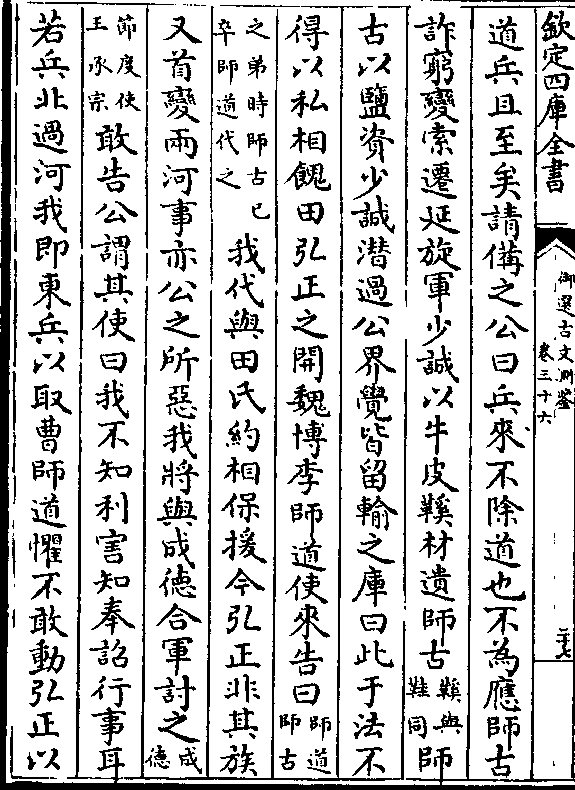 欽定四庫全書
御選古文淵鑒
卷三十六
二十七
道兵且至矣請備之公曰兵來不除道也不為應師古
詐窮變索遷延旋軍少誠以牛皮鞵材遺師古鞵與鞋同師
古以鹽資少誠潛過公界覺皆留輸之庫曰此于法不
得以私相餽田弘正之開魏博李師道使來告曰師道師古
之弟時師古已卒師道代之我代與田氏約相保援今弘正非其族
又首變兩河事亦公之所惡我將與成德合軍討之成德
節度使王承宗敢告公謂其使曰我不知利害知奉詔行事耳
若兵北過河我即東兵以取曹師道懼不敢動弘正以